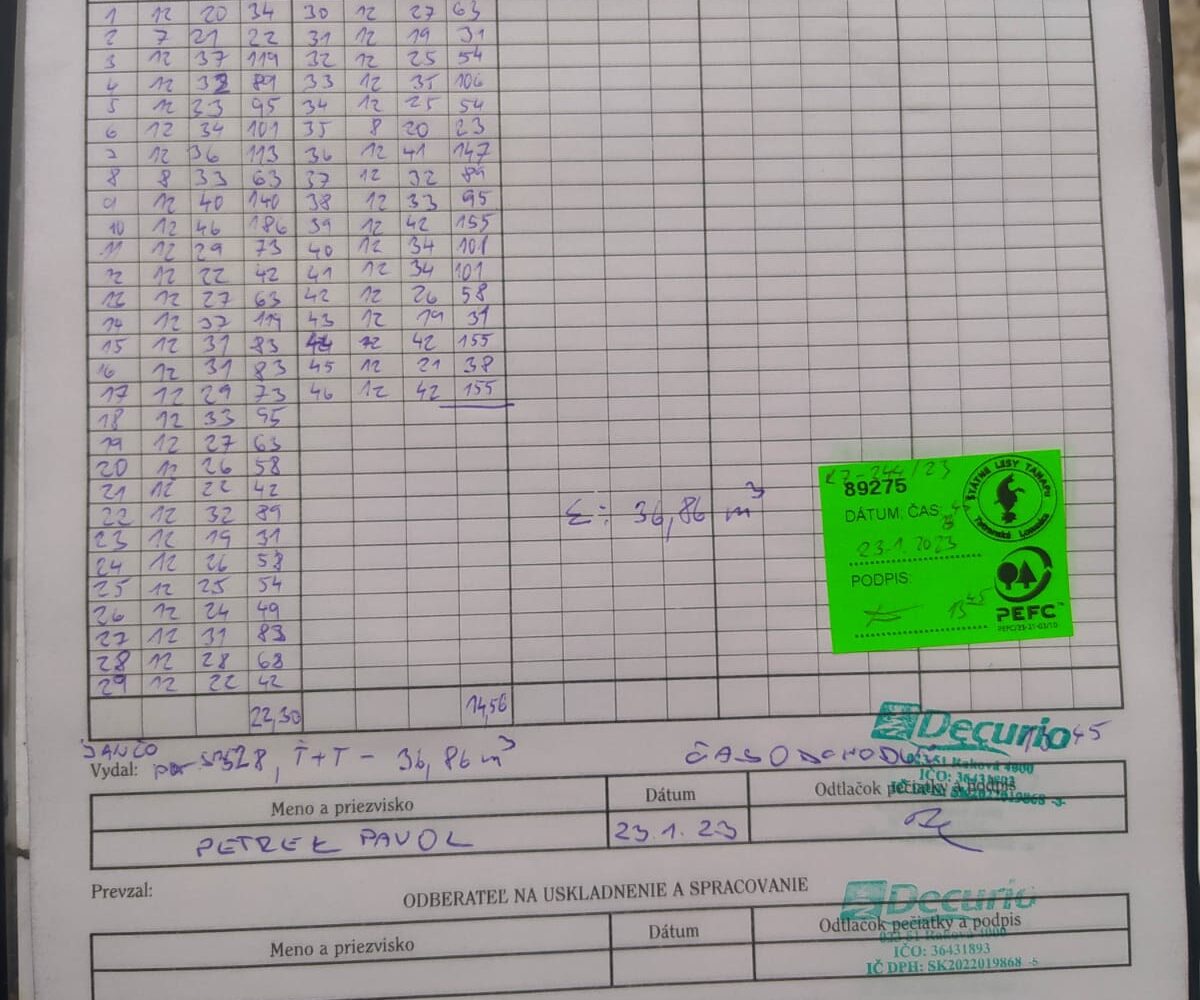 1 12 20 34 30 12 27 63
2 7 21 22 31 12 19 31
3 12 37 119 32 12 25 54
4 12 32 89 33 12 35 106
5 12 33 95 34 12 25 54
6 12 34 101 35 8 20 23
7 12 36 113 36 12 41 147
8 8 33 63 37 12 32 89
9 12 40 140 38 12 33 95
10 12 46 186 39 12 42 155
11 12 29 73 40 12 34 101
12 22 42 41 12 34 101
13 12 27 63 42 12 26 58
14 12 37 119 43 12 19 31
15 12 31 83 44 12 42 155
16 12 31 83 45 12 21 38
17 12 29 73 46 12 42 155
18 12 33 95
19 12 27 63
20 12 26 58
21 12 22 42
22 12 32 89
23 12 19 31
24 12 26 58
25 12 25 54
26 12 24 49
27 12 31 83
28 12 28 68
29 12 22 42
22,30 14,56
Σ: 36,86 m³
KZ-244/23
89275
DÁTUM, ČAS:
23.1.2023
PODPIS:
13 45
ŠTÁTNE LESY TANAPU
Tatranská Lomnica
PEFC™
PEFC/23-21-03/10
JANČO
Vydal: 528, Ť+T - 36,86 m³
ČAS ODCHODU: 13 45
Decurio
IČO: 36431893
Meno a priezvisko Dátum Odtlačok pečiatky a podpis
PETREK PAVOL 23.1.23
Prevzal: ODBERATEĽ NA USKLADNENIE A SPRACOVANIE
Decurio
Meno a priezvisko Dátum Odtlačok pečiatky a podpis
IČO: 36431893
IČ DPH: SK2022019868 -5